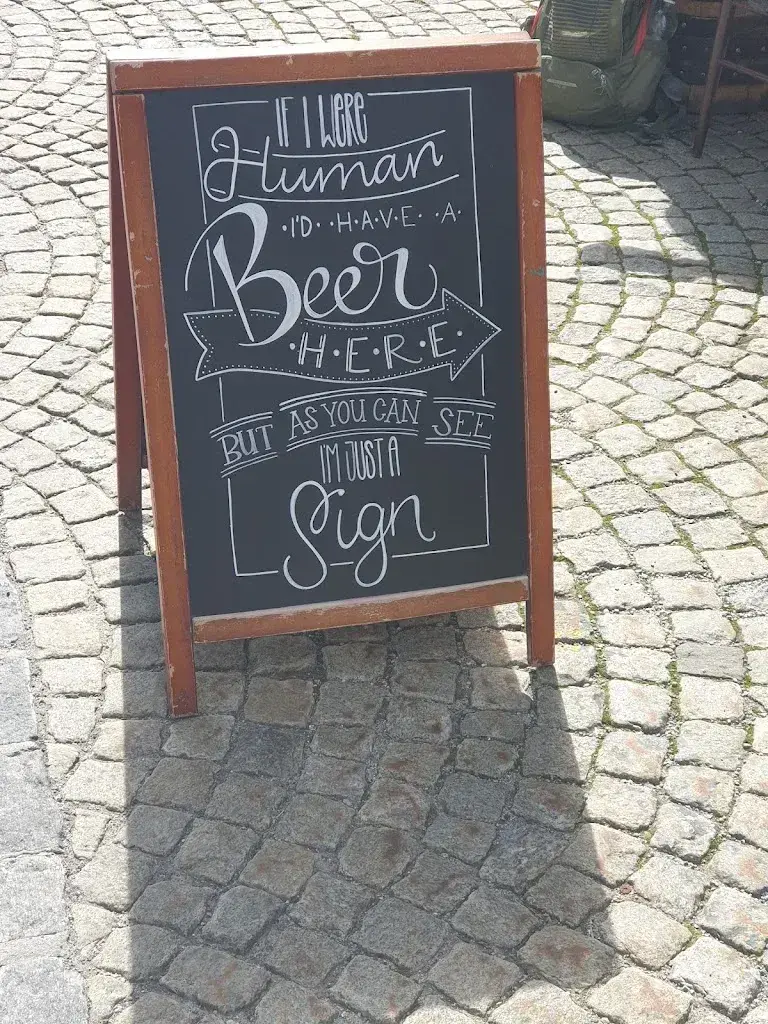 IF I WERE
Human
I'D HAVE A
Beer
HERE
BUT AS YOU CAN SEE
I'M JUST A
Sign